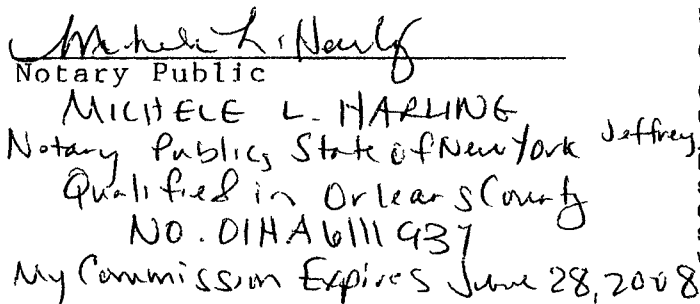 Michele L. Harling
Notary Public
MICHELE L. HARLING
Notary Public, State of New York Jeffrey
Qualified in Orleans County
NO. 01HA6111937
My Commission Expires June 28, 2008